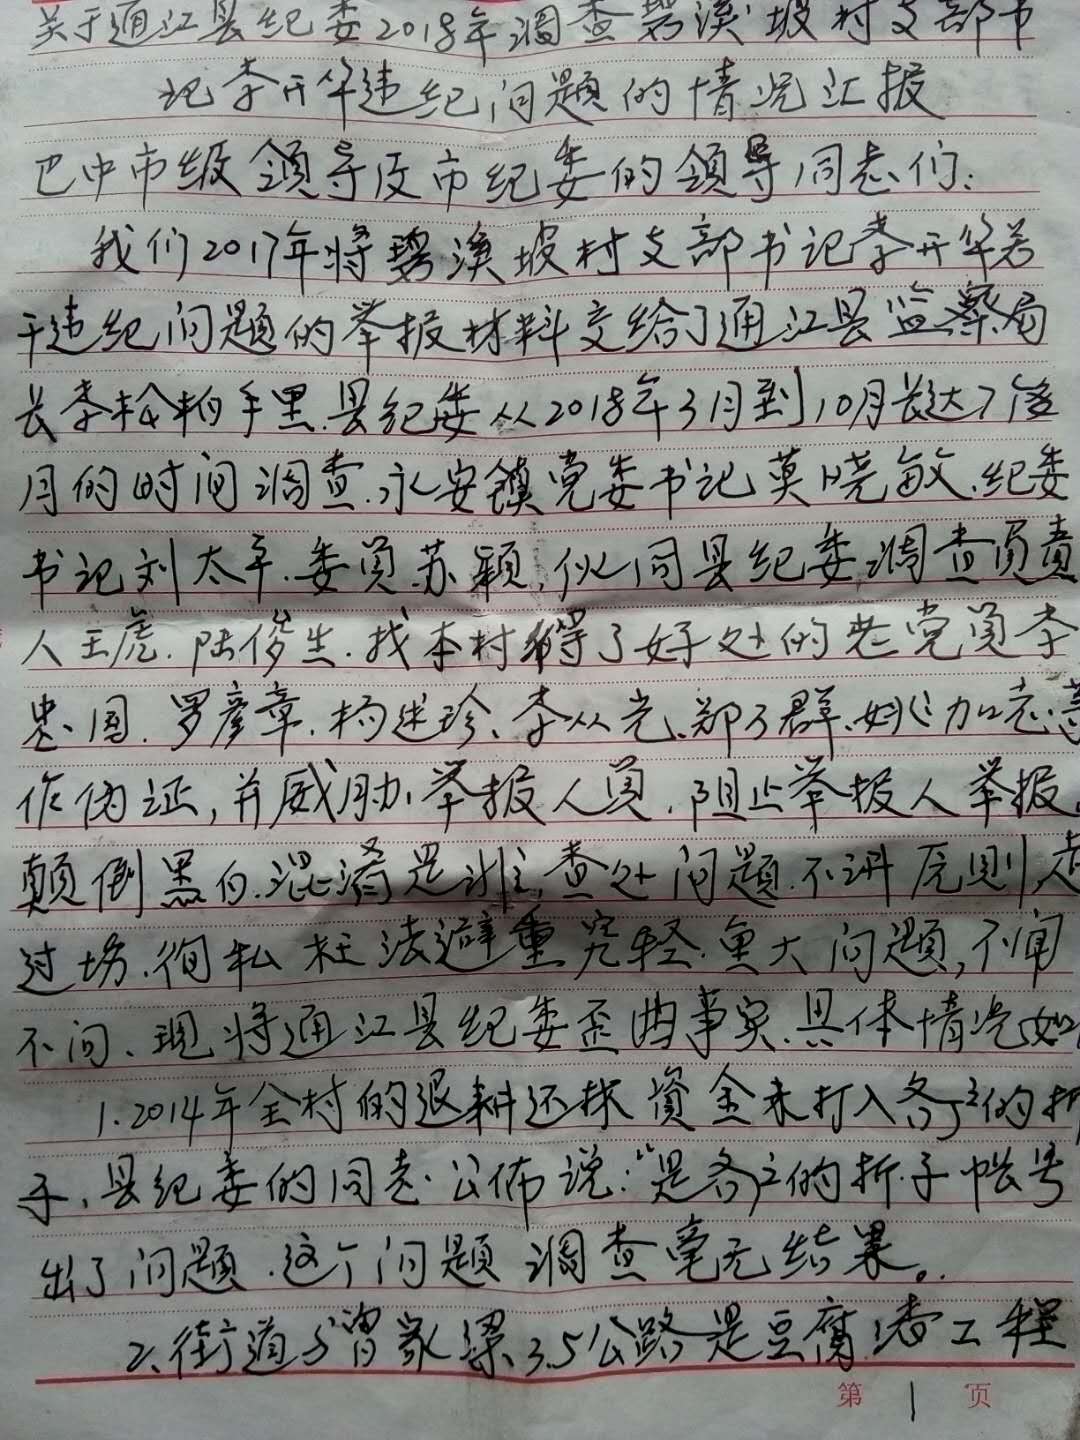 关于通江县纪委2018年调查碧溪坡村支部书
记李开华违纪问题的情况汇报
巴中市级领导及市纪委的领导同志们:
我们2017年将碧溪坡村支部书记李开华若
干违纪问题的举报材料交给了通江县监察局
长李松柏手里.县纪委从2018年3月到10月长达7个
月的时间调查.永安镇党委书记莫晓敏、纪委
书记刘太平.委员苏颖,伙同县纪委调查负责
人王虎.陆俊生.找本村得了好处的老党员李
忠国.罗彦章.杨述珍、李从光、郑子群、姚加志等
作伪证,并威胁举报人员.阻止举报人举报,
颠倒黑白.混淆是非,查处问题.不讲原则,走
过场.徇私枉法避重究轻.重大问题,不闻
不问、现将通江县纪委歪曲事实.具体情况如
1.2014年全村的退耕还林资金未打入各户的折
子,县纪委的同志公佈说:“是各户的折子帐号
出了问题.这个问题调查毫无结果。
2、街道与曾家梁3.5公路是豆腐渣工程
第 1 页